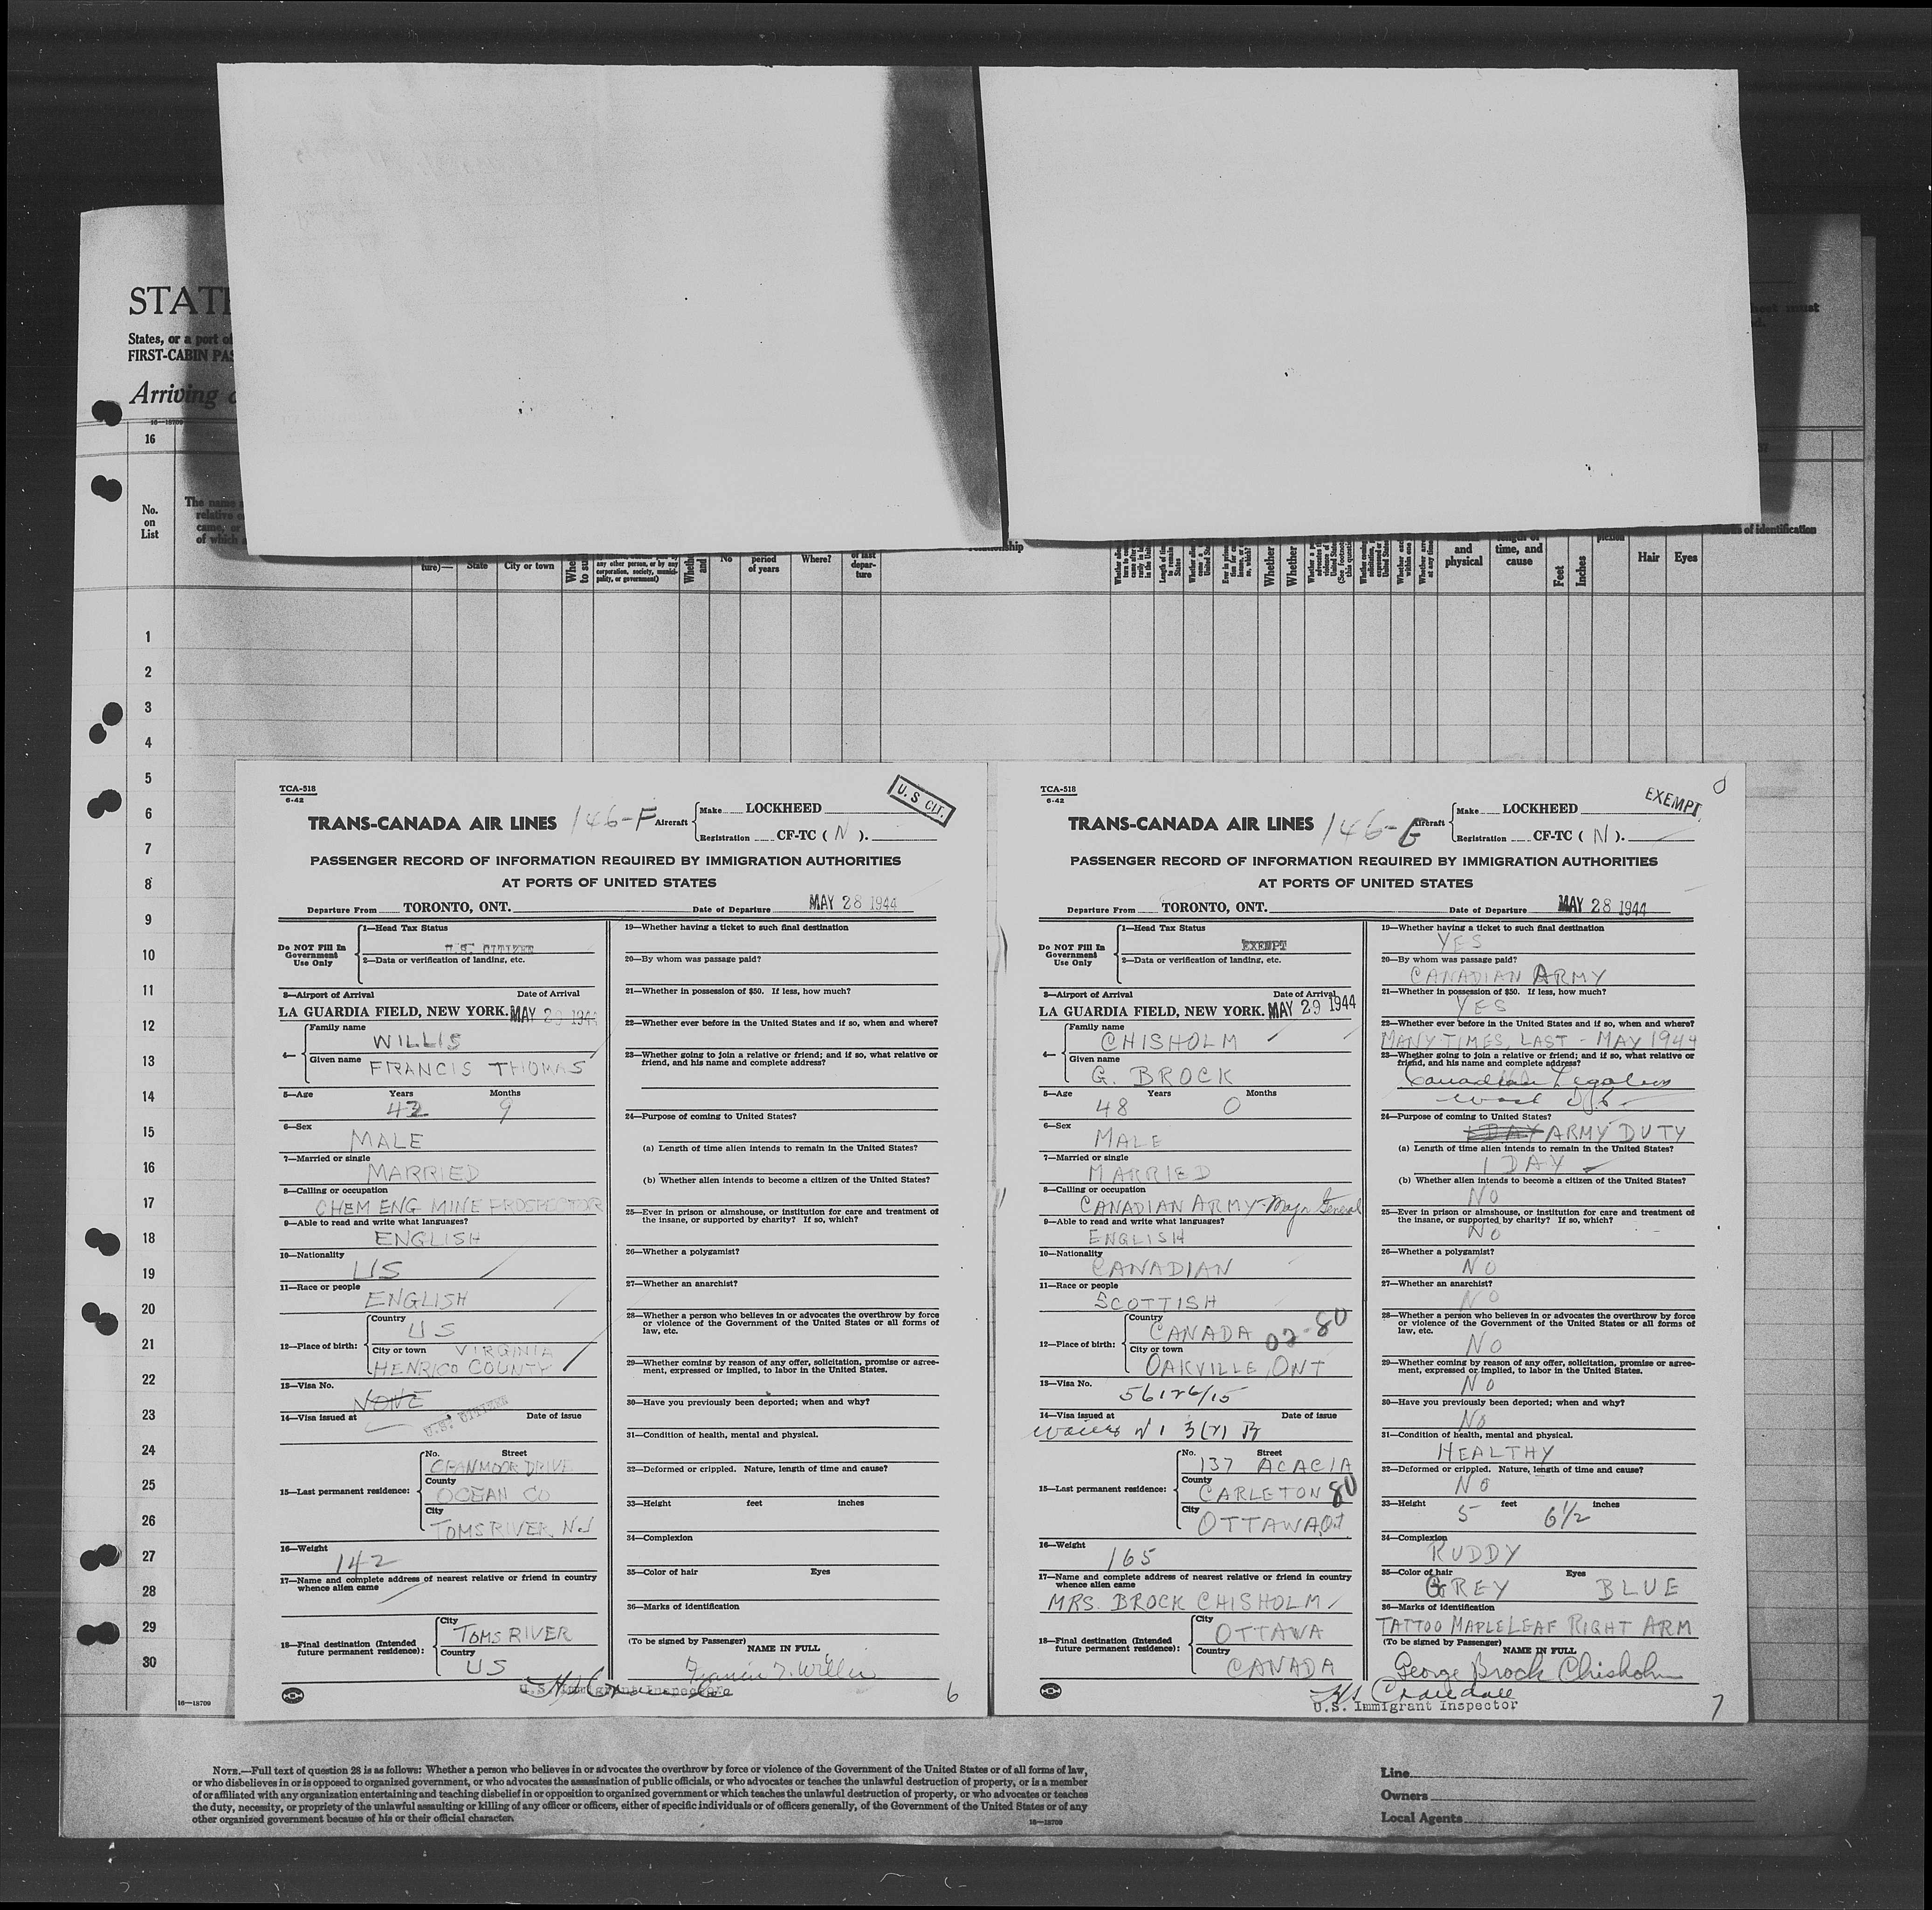 STATE
States, or a port of
FIRST-CABIN PAS
Arriving
16—18709
16
No.
on
List
The name
relative o
came, or
of which
ture)—
State
City or town
any other person, or by any
corporation, society, munici-
pality, or government)
No
period
of years
Where?
of last
depar-
ture
Whether
Whether
and
physical
length of
time, and
cause
Feet
Inches
Hair
Eyes
of identification
1
2
3
4
5
6
7
8
9
10
11
12
13
14
15
16
17
18
19
20
21
22
23
24
25
26
27
28
29
30
16—18709
TCA-518
6-42
U. S CIT.
TRANS-CANADA AIR LINES 146-F Aircraft
Make LOCKHEED
Registration CF-TC ( N ).
PASSENGER RECORD OF INFORMATION REQUIRED BY IMMIGRATION AUTHORITIES
AT PORTS OF UNITED STATES
Departure From TORONTO, ONT. Date of Departure MAY 28 1944
Do NOT Fill In
Government
Use Only
1—Head Tax Status
U.S. CITIZEN
2—Data or verification of landing, etc.
3—Airport of Arrival Date of Arrival
LA GUARDIA FIELD, NEW YORK. MAY 29 1944
4— Family name
WILLIS
Given name
FRANCIS THOMAS
5—Age Years Months
42 9
6—Sex
MALE
7—Married or single
MARRIED
8—Calling or occupation
CHEM ENG MINE PROSPECTOR
9—Able to read and write what languages?
ENGLISH
10—Nationality
US
11—Race or people
ENGLISH
12—Place of birth:
Country
US
City or town VIRGINIA
HENRICO COUNTY
13—Visa No.
NONE
14—Visa issued at U.S. CITIZEN Date of issue
15—Last permanent residence:
No. Street
CRANMOOR DRIVE
County
OCEAN CO
City
TOMS RIVER N.J
16—Weight
142
17—Name and complete address of nearest relative or friend in country
whence alien came
18—Final destination (Intended
future permanent residence):
City
TOMS RIVER
Country
US
19—Whether having a ticket to such final destination
20—By whom was passage paid?
21—Whether in possession of $50. If less, how much?
22—Whether ever before in the United States and if so, when and where?
23—Whether going to join a relative or friend; and if so, what relative or
friend, and his name and complete address?
24—Purpose of coming to United States?
(a) Length of time alien intends to remain in the United States?
(b) Whether alien intends to become a citizen of the United States?
25—Ever in prison or almshouse, or institution for care and treatment of
the insane, or supported by charity? If so, which?
26—Whether a polygamist?
27—Whether an anarchist?
28—Whether a person who believes in or advocates the overthrow by force
or violence of the Government of the United States or all forms of
law, etc.
29—Whether coming by reason of any offer, solicitation, promise or agree-
ment, expressed or implied, to labor in the United States.
30—Have you previously been deported; when and why?
31—Condition of health, mental and physical.
32—Deformed or crippled. Nature, length of time and cause?
33—Height feet inches
34—Complexion
35—Color of hair Eyes
36—Marks of identification
(To be signed by Passenger)
NAME IN FULL
Francis T. Willis
U.S. Immigrant Inspector
6
TCA-518
6-42
EXEMPT
TRANS-CANADA AIR LINES 146-E Aircraft
Make LOCKHEED
Registration CF-TC ( N ).
PASSENGER RECORD OF INFORMATION REQUIRED BY IMMIGRATION AUTHORITIES
AT PORTS OF UNITED STATES
Departure From TORONTO, ONT. Date of Departure MAY 28 1944
Do NOT Fill In
Government
Use Only
1—Head Tax Status
EXEMPT
2—Data or verification of landing, etc.
3—Airport of Arrival Date of Arrival
LA GUARDIA FIELD, NEW YORK. MAY 29 1944
4— Family name
CHISHOLM
Given name
G. BROCK
5—Age Years Months
48 0
6—Sex
MALE
7—Married or single
MARRIED
8—Calling or occupation
CANADIAN ARMY-Major General
9—Able to read and write what languages?
ENGLISH
10—Nationality
CANADIAN
11—Race or people
SCOTTISH
12—Place of birth:
Country
CANADA 02-80
City or town
OAKVILLE, ONT
13—Visa No.
56126/15
14—Visa issued at Date of issue
15—Last permanent residence:
No. Street
137 ACACIA
County
CARLETON 80
City
OTTAWA, Ont
16—Weight
165
17—Name and complete address of nearest relative or friend in country
whence alien came
MRS. BROCK CHISHOLM
18—Final destination (Intended
future permanent residence):
City
OTTAWA
Country
CANADA
19—Whether having a ticket to such final destination
YES
20—By whom was passage paid?
CANADIAN ARMY
21—Whether in possession of $50. If less, how much?
YES
22—Whether ever before in the United States and if so, when and where?
MANY TIMES, LAST - MAY 1944
23—Whether going to join a relative or friend; and if so, what relative or
friend, and his name and complete address?
Canadian Legation
Wash D.C.
24—Purpose of coming to United States?
1 DAY ARMY DUTY
(a) Length of time alien intends to remain in the United States?
1 DAY
(b) Whether alien intends to become a citizen of the United States?
NO
25—Ever in prison or almshouse, or institution for care and treatment of
the insane, or supported by charity? If so, which?
NO
26—Whether a polygamist?
NO
27—Whether an anarchist?
NO
28—Whether a person who believes in or advocates the overthrow by force
or violence of the Government of the United States or all forms of
law, etc.
NO
29—Whether coming by reason of any offer, solicitation, promise or agree-
ment, expressed or implied, to labor in the United States.
NO
30—Have you previously been deported; when and why?
NO
31—Condition of health, mental and physical.
HEALTHY
32—Deformed or crippled. Nature, length of time and cause?
NO
33—Height 5 feet 6 1/2 inches
34—Complexion
RUDDY
35—Color of hair Eyes
GREY BLUE
36—Marks of identification
TATTOO MAPLELEAF RIGHT ARM
(To be signed by Passenger)
NAME IN FULL
George Brock Chisholm
Crandall
U.S. Immigrant Inspector
7
NOTE.—Full text of question 28 is as follows: Whether a person who believes in or advocates the overthrow by force or violence of the Government of the United States or of all forms of law,
or who disbelieves in or is opposed to organized government, or who advocates the assassination of public officials, or who advocates or teaches the unlawful destruction of property, or is a member
of or affiliated with any organization entertaining and teaching disbelief in or opposition to organized government or which teaches the unlawful destruction of property, or who advocates or teaches
the duty, necessity, or propriety of the unlawful assaulting or killing of any officer or officers, either of specific individuals or of officers generally, of the Government of the United States or of any
other organized government because of his or their official character.
16—18709
Line
Owners
Local Agents